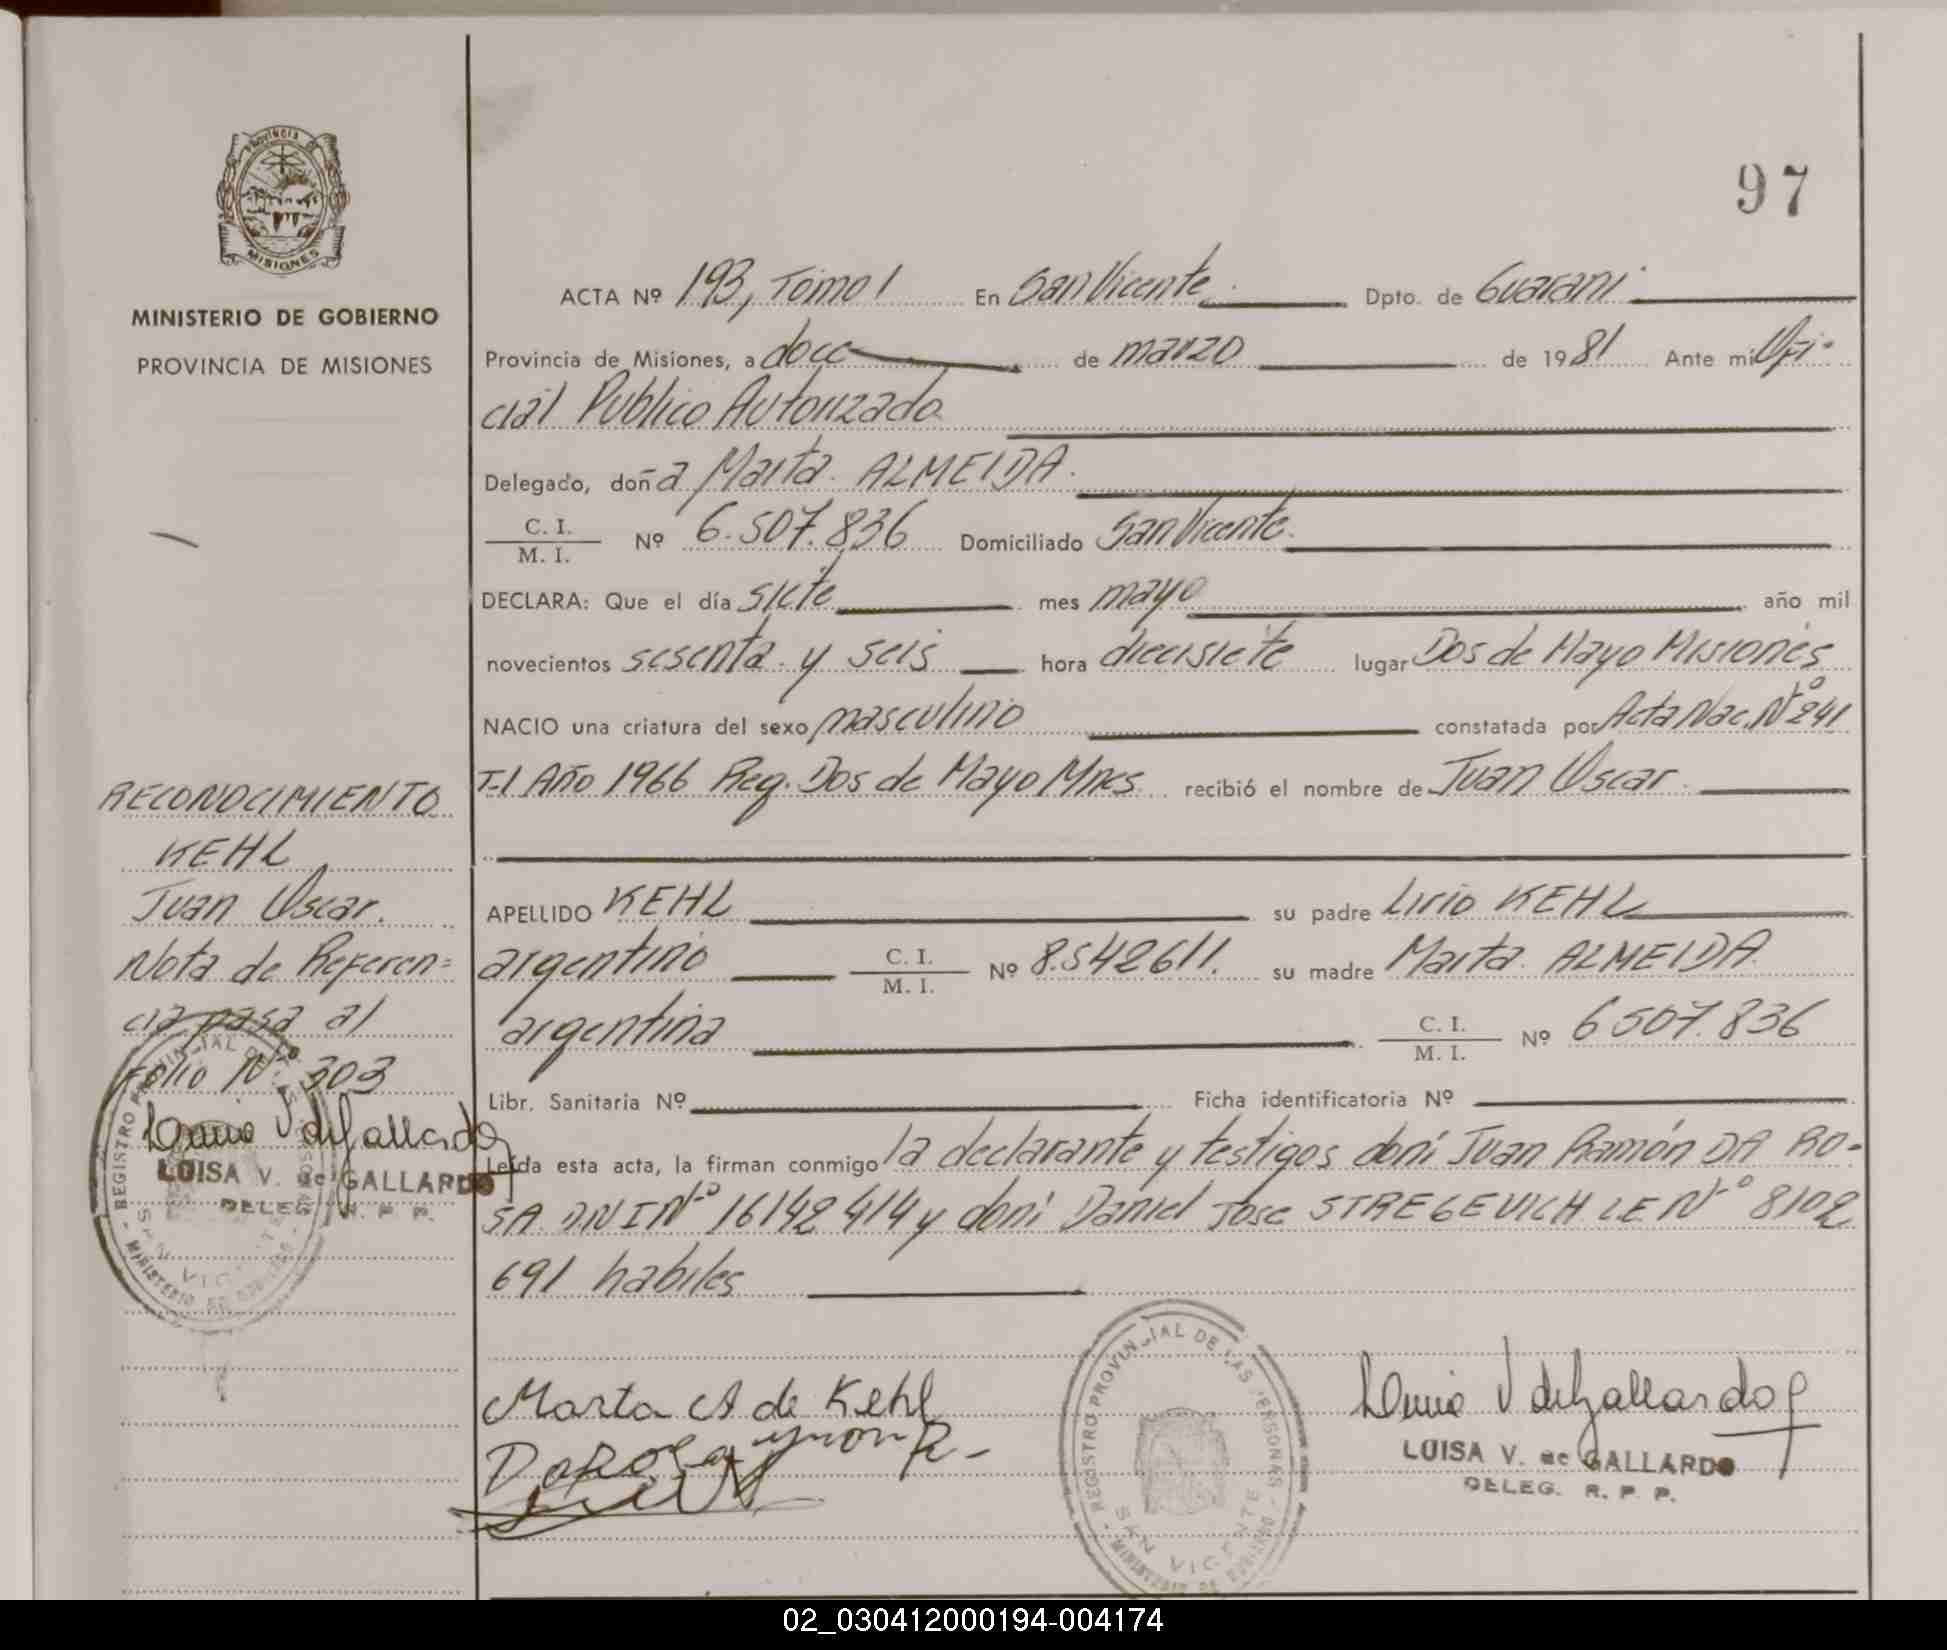 PROVINCIA DE
MISIONES
MINISTERIO DE GOBIERNO
PROVINCIA DE MISIONES
97
ACTA Nº 193, Tomo I En San Vicente Dpto. de Guarani
Provincia de Misiones, a doce de marzo de 1981 Ante mi Ofi-
cial Publico Autorizado
Delegado, doña Marta ALMEIDA
C. I.
M. I.
Nº 6.507.836 Domiciliado San Vicente
DECLARA: Que el día siete mes mayo año mil
novecientos sesenta y seis hora diecisiete lugar Dos de Mayo Misiones
NACIO una criatura del sexo masculino constatada por Acta Nac. Nº 241
T-I Año 1966 Reg. Dos de Mayo Mnes recibió el nombre de Juan Oscar
APELLIDO KEHL su padre Lirio KEHL
argentino C. I. / M. I. Nº 8.542611. su madre Marta ALMEIDA
argentina C. I. / M. I. Nº 6507.836
Libr. Sanitaria Nº Ficha identificatoria Nº
Leída esta acta, la firman conmigo la declarante y testigos don: Juan Ramón DA RO-
SA DNI Nº 16142414 y don: Daniel Jose STREGEVICH LE Nº 8102
691 habiles
RECONOCIMIENTO
KEHL
Juan Oscar.
Nota de Referen=
cia pasa al
Folio Nº 303
LUISA V. de GALLARDO
DELEG. R. P. P.
REGISTRO PROVINCIAL DE LAS PERSONAS
SAN VICENTE
MINISTERIO DE GOBIERNO
Marta A de Kehl
Da Rosa Ramon R-
REGISTRO PROVINCIAL DE LAS PERSONAS
SAN VICENTE
MINISTERIO DE GOBIERNO
Luisa V de Gallardo
LUISA V. de GALLARDO
DELEG. R. P. P.
02_030412000194-004174